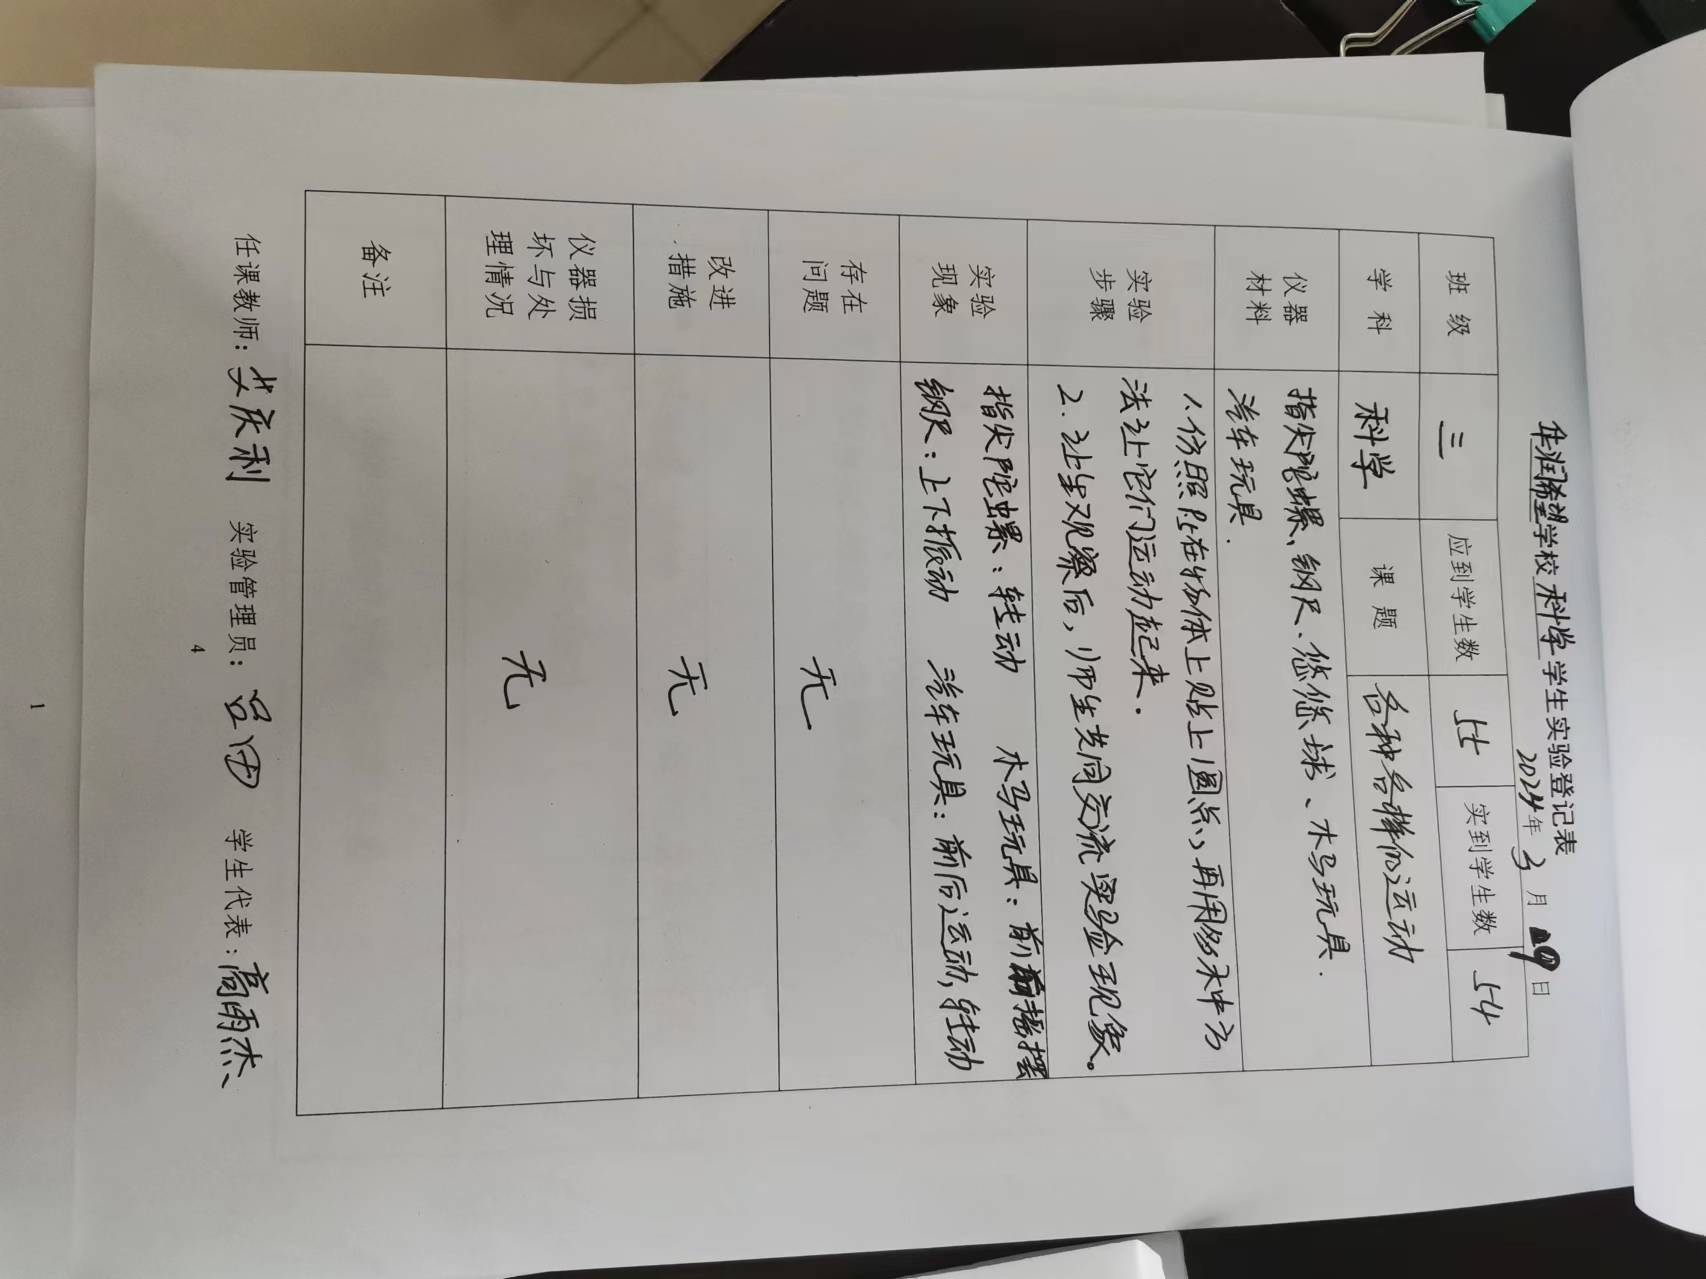 华润希望学校科学学生实验登记表
2024年3月19日
班级 三 应到学生数 54 实到学生数 54
学科 科学 课题 各种各样的运动
仪器材料 指尖陀螺、钢尺、悠悠球、木马玩具、
汽车玩具.
实验步骤 1.仿照P2在物体上贴上1圆点,再用多种方
法让它们运动起来.
2.让生观察后,师生共同交流实验现象。
实验现象 指尖陀螺:转动 木马玩具:前后摇摆
钢尺:上下振动 汽车玩具:前后运动,转动
存在问题 无
改进措施 无
仪器损坏与处理情况 无
备注
任课教师:艾庆利 实验管理员:吕田 学生代表:高雨杰
4
1